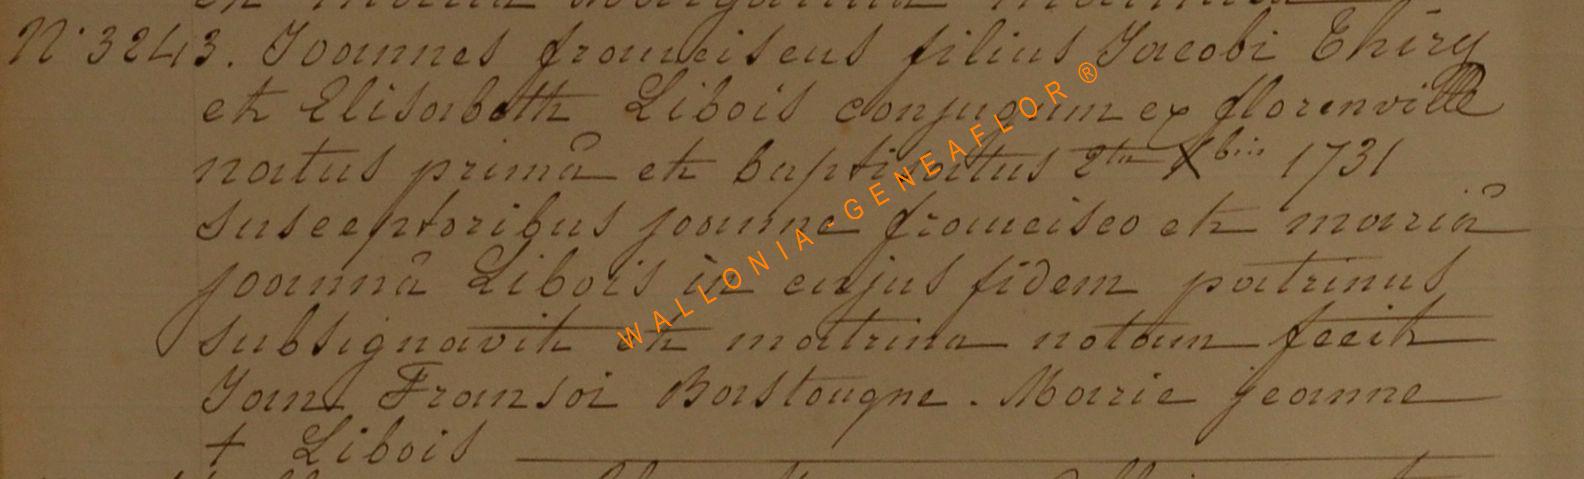 N° 3243. Joannes franciscus filius Jacobi Thiry
et Elisabeth Libois conjugum ex florenville
natus primâ et baptisatus 2da Xbris 1731
susceptoribus joanne francisco et mariâ
joannâ Libois in cujus fidem patrinus
subsignavit et matrina notam fecit
Jan Fransoi Bastougne. Marie jeanne
+ Libois
WALLONIA-GENEAFLOR®